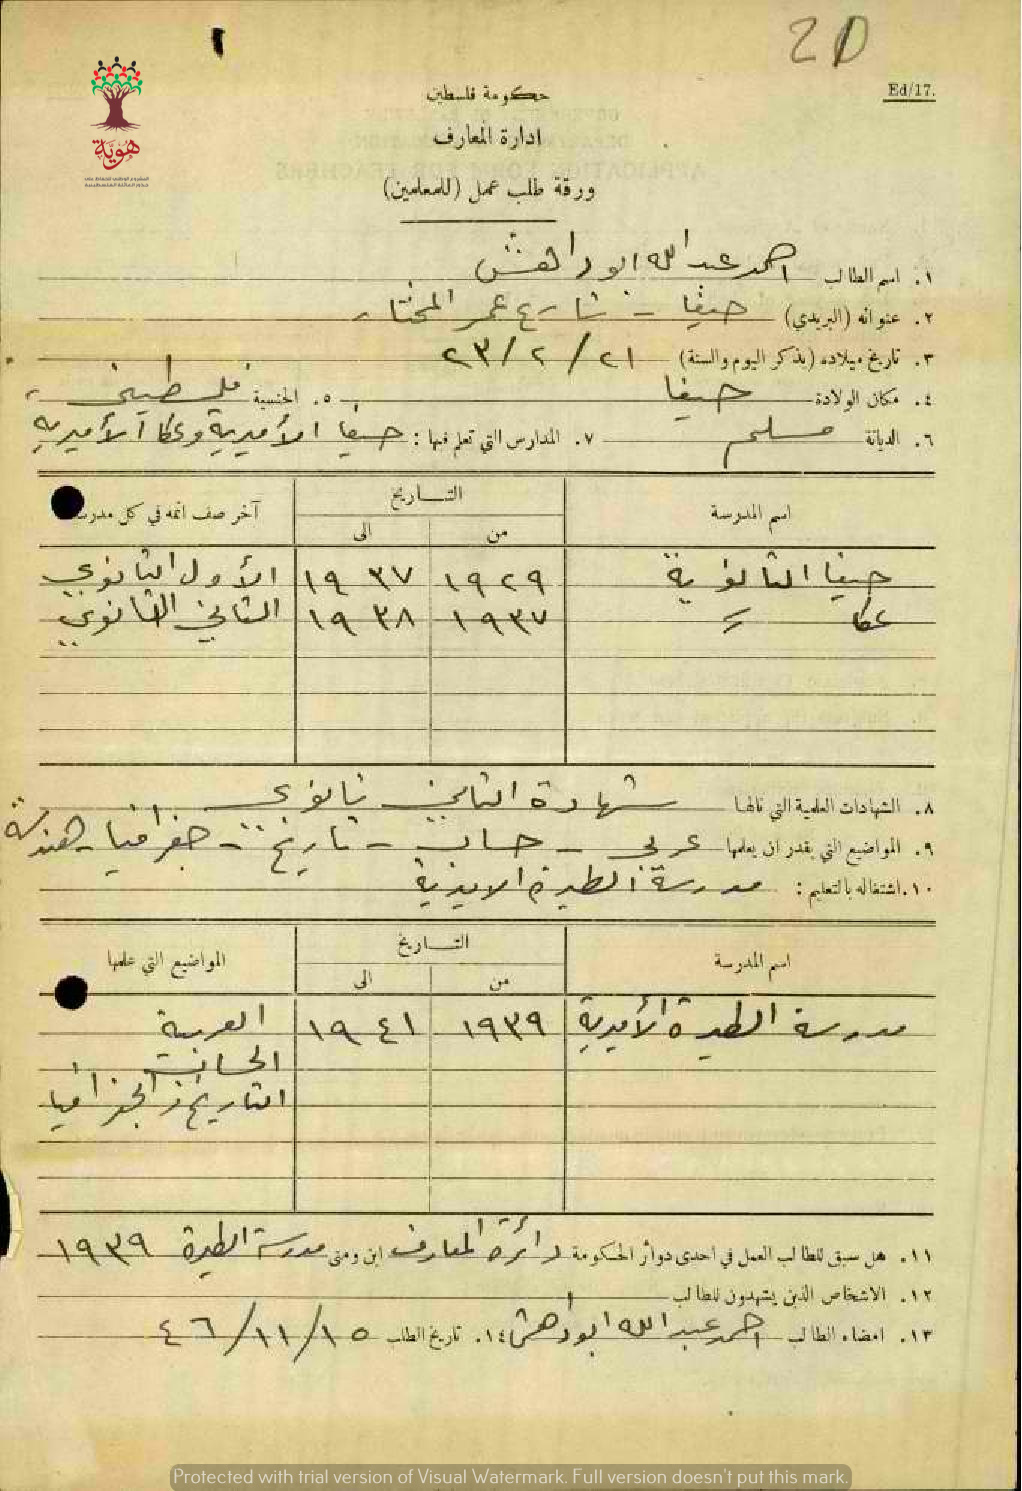 2D
Ed/17.
هوية
حكومة فلسطين
ادارة المعارف
ورقة طلب عمل (للمعلمين)
١. اسم الطالب احمد عبد الله ابو راهش
٢. عنوانه (البريدي) حيفا - شارع عمر المختار
٣. تاريخ ميلاده (يذكر اليوم والسنة) ٢١ / ٢ / ٢٣
٤. مكان الولادة حيفا ٥. الجنسية فلسطيني
٦. الديانة مسلم ٧. المدارس التي تعلم فيها : حيفا الأميرية وعكا الأميرية
اسم المدرسة التاريخ آخر صف اتمه في كل مدرسة
من الى
حيفا الثانوية ١٩٢٩ ١٩٣٧ الأول الثانوي
عكا = ١٩٣٧ ١٩٣٨ الثاني الثانوي
٨. الشهادات العلمية التي نالها شهادة الثاني ثانوي
٩. المواضيع التي يقدر ان يعلمها عربي - حساب - تاريخ - جغرافيا - هندسة
١٠. اشتغاله بالتعليم : مدرسة الطيرة الاميرية
اسم المدرسة التاريخ المواضيع التي علمها
من الى
مدرسة الطيرة الأميرية ١٩٣٩ ١٩٤١ العربية
الحساب
التاريخ والجغرافيا
١١. هل سبق للطالب العمل في احدى دوائر الحكومة دائرة المعارف اين ومتى مدرسة الطيرة ١٩٣٩
١٢. الاشخاص الذين يشهدون للطالب
١٣. امضاء الطالب احمد عبد الله ابو راهش ١٤. تاريخ الطلب ١٥/١١/٤٦
Protected with trial version of Visual Watermark. Full version doesn't put this mark.